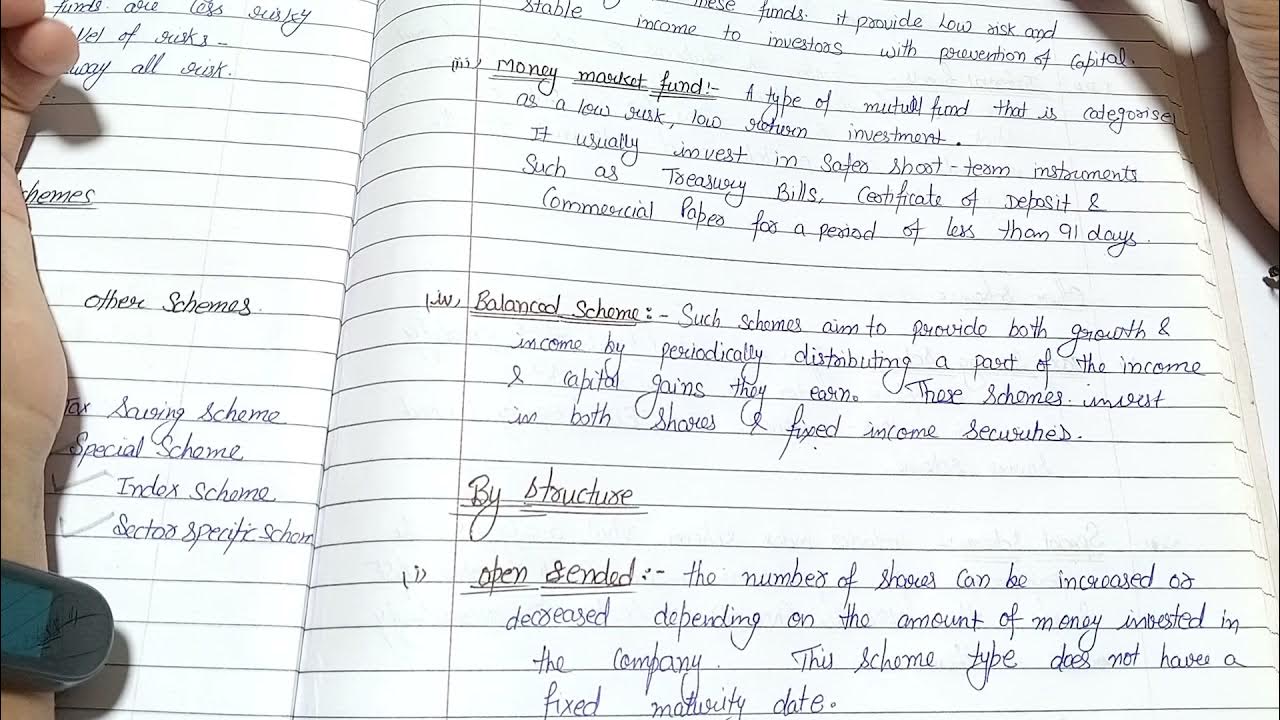 funds are less risky
level of risks -
away all risk.
hemes
other Schemes.
Tax Saving Scheme
Special Scheme
Index Scheme
Sector specific schem
these funds. it provide Low risk and
stable income to investors with prevention of capital.
iii) Money market fund:- A type of mutull fund that is categorise
as a low risk, low return investment.
It usually invest in safer short-term instruments
Such as Treasury Bills, Certificate of Deposit &
Commercial Paper for a period of less than 91 days.
(iv) Balanced Scheme:- Such schemes aim to provide both growth &
income by periodically distributing a part of the income
& capital gains they earn. These schemes invest
in both shares & fixed income securities.
By Structure
(i) open ended:- the number of shares can be increased or
decreased depending on the amount of money invested in
the company. This scheme type does not have a
fixed maturity date.